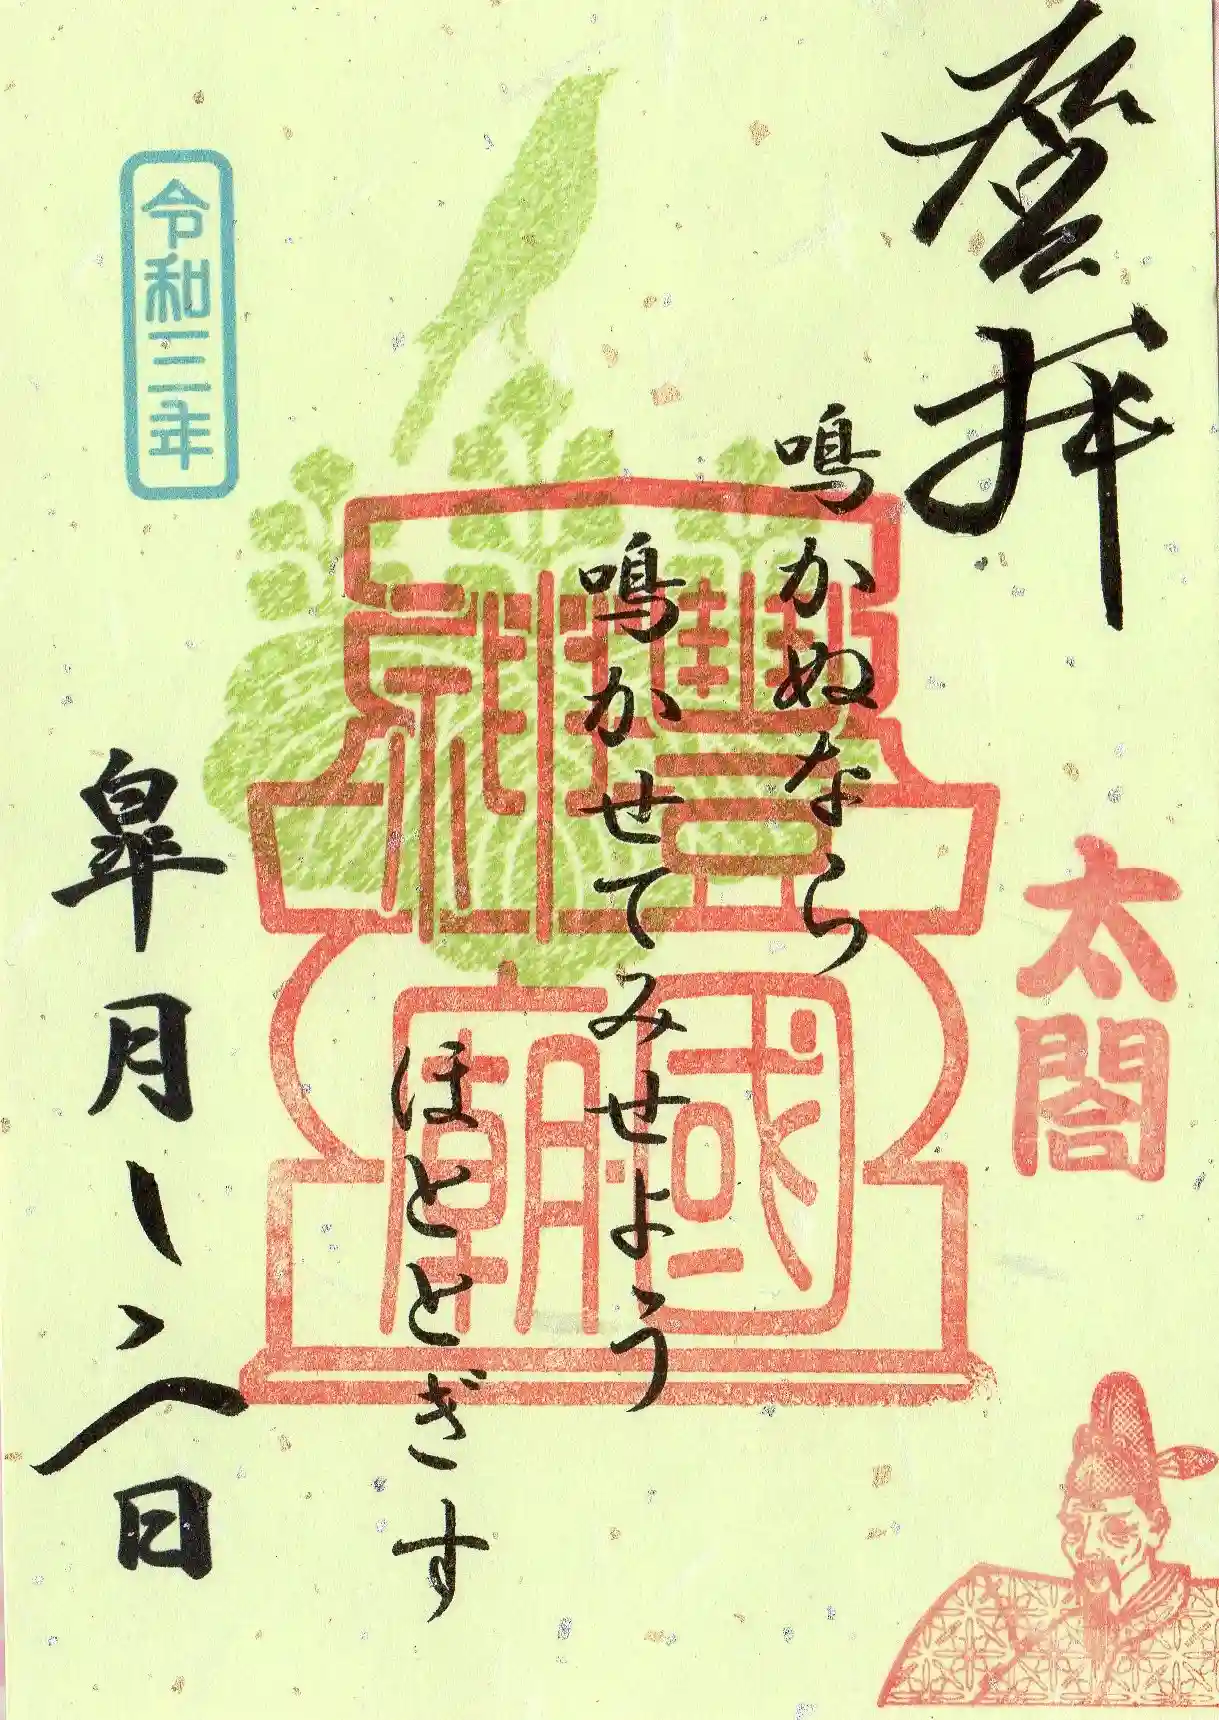 登拝
太閤
鳴かぬなら
鳴かせてみせよう
ほととぎす
豐國
神廟
令和三年
皐月一八日